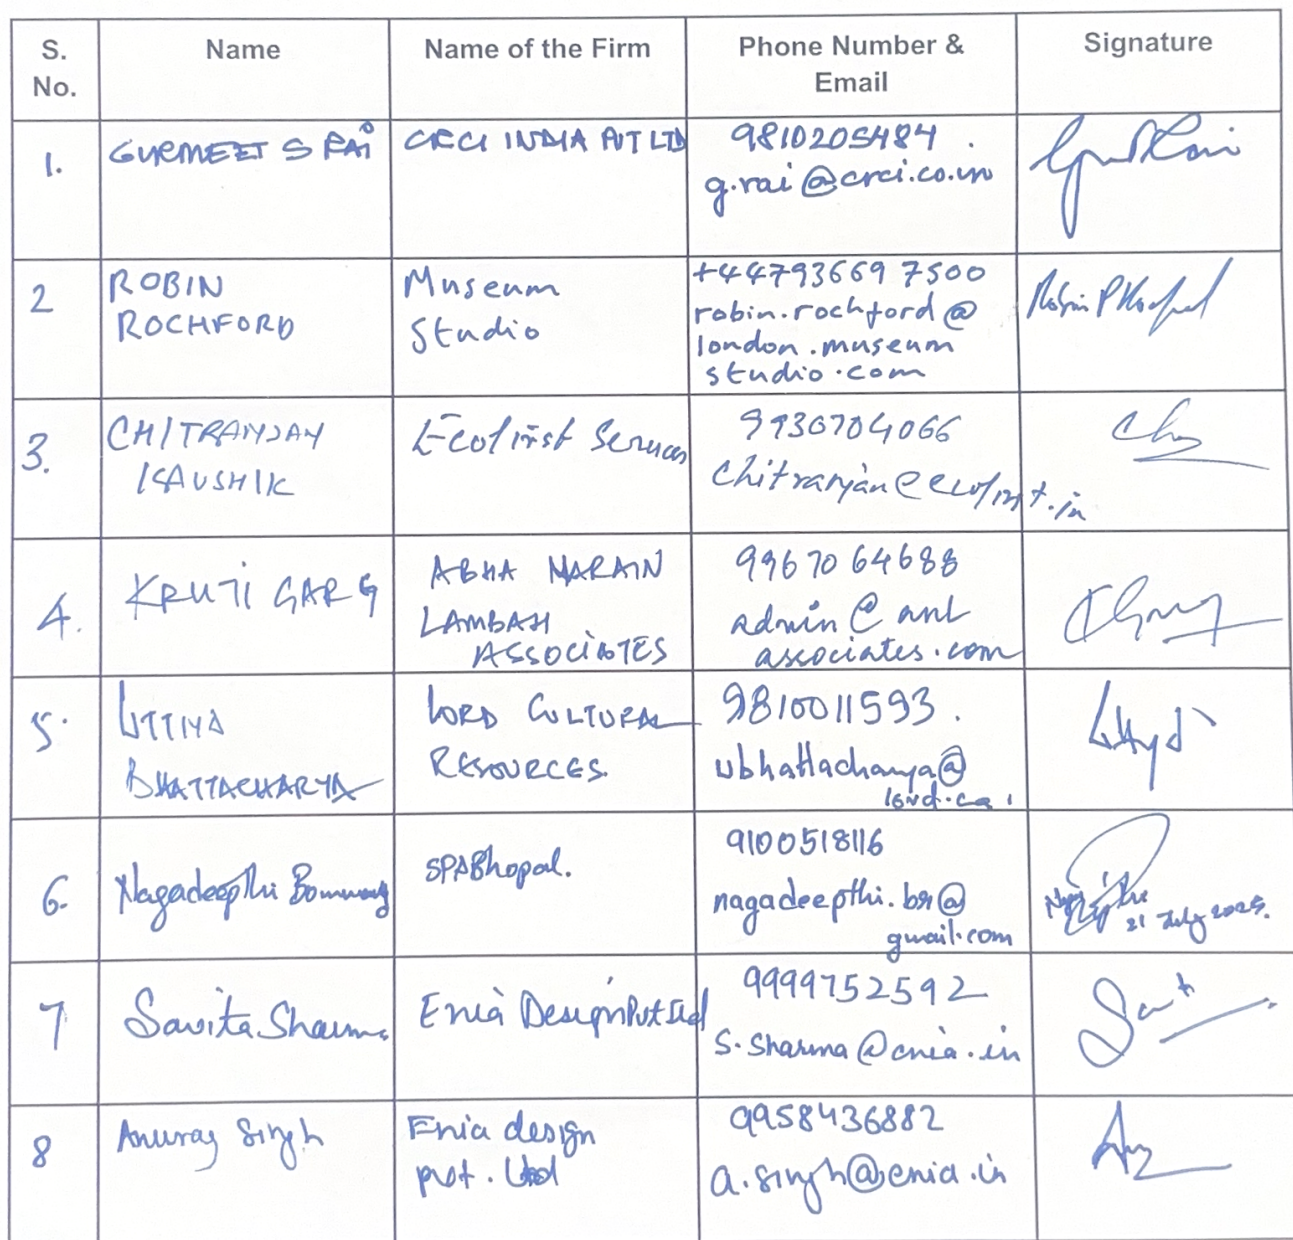 S. No.
Name
Name of the Firm
Phone Number & Email
Signature
1.
GURMEET S RAI
CRCI INDIA PVT LTD
9810205484
g.rai@crci.co.in
2
ROBIN
ROCHFORD
Museum
Studio
+447936697500
robin.rochford@
london.museum
studio.com
Robin P Rochford
3.
CHITRANJAN
KAUSHIK
Ecofirst Services
9930704066
chitranjan@ecofirst.in
4.
KRUTI GARG
ABHA NARAIN
LAMBAH
ASSOCIATES
9967064688
admin@anl
associates.com
5.
UTTIYA
BHATTACHARYA
LORD CULTURAL
RESOURCES.
9810011593.
ubhattacharya@
lord.ca
6.
Nagadeepthi
SPABhopal.
9100518116
nagadeepthi.bn@
gmail.com
21 July 2025.
7
Savita Sharma
Enia Design Pvt Ltd
9999752592
s.sharma@enia.in
8
Anurag Singh
Enia design
pvt. Ltd
9958436882
a.singh@enia.in